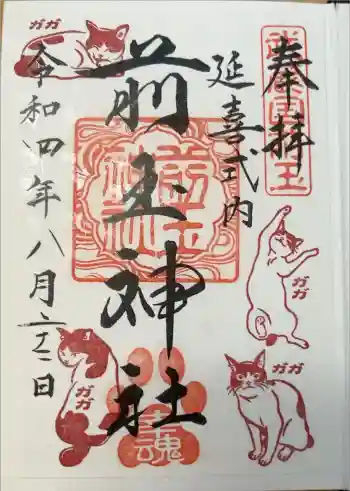 奉拝
延喜式内
前玉神社
令和四年八月二十二日
ガガ
ガガ
ガガ
ガガ
幸魂